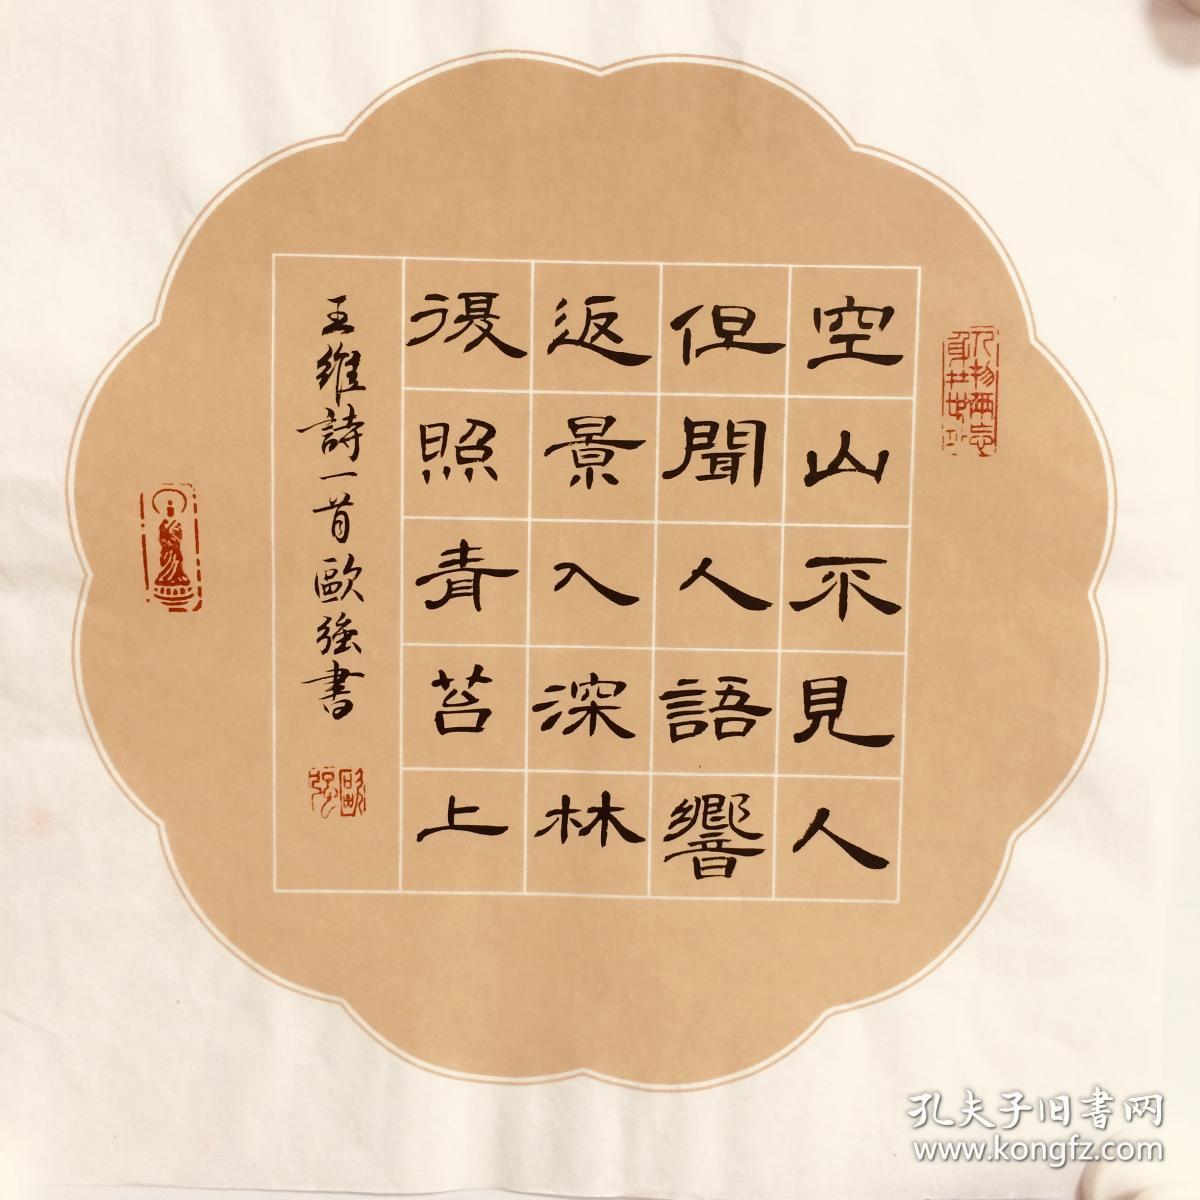 空山不見人
但聞人語響
返景入深林
復照青苔上
王維詩一首歐強書
孔夫子旧書网
www.kongfz.com